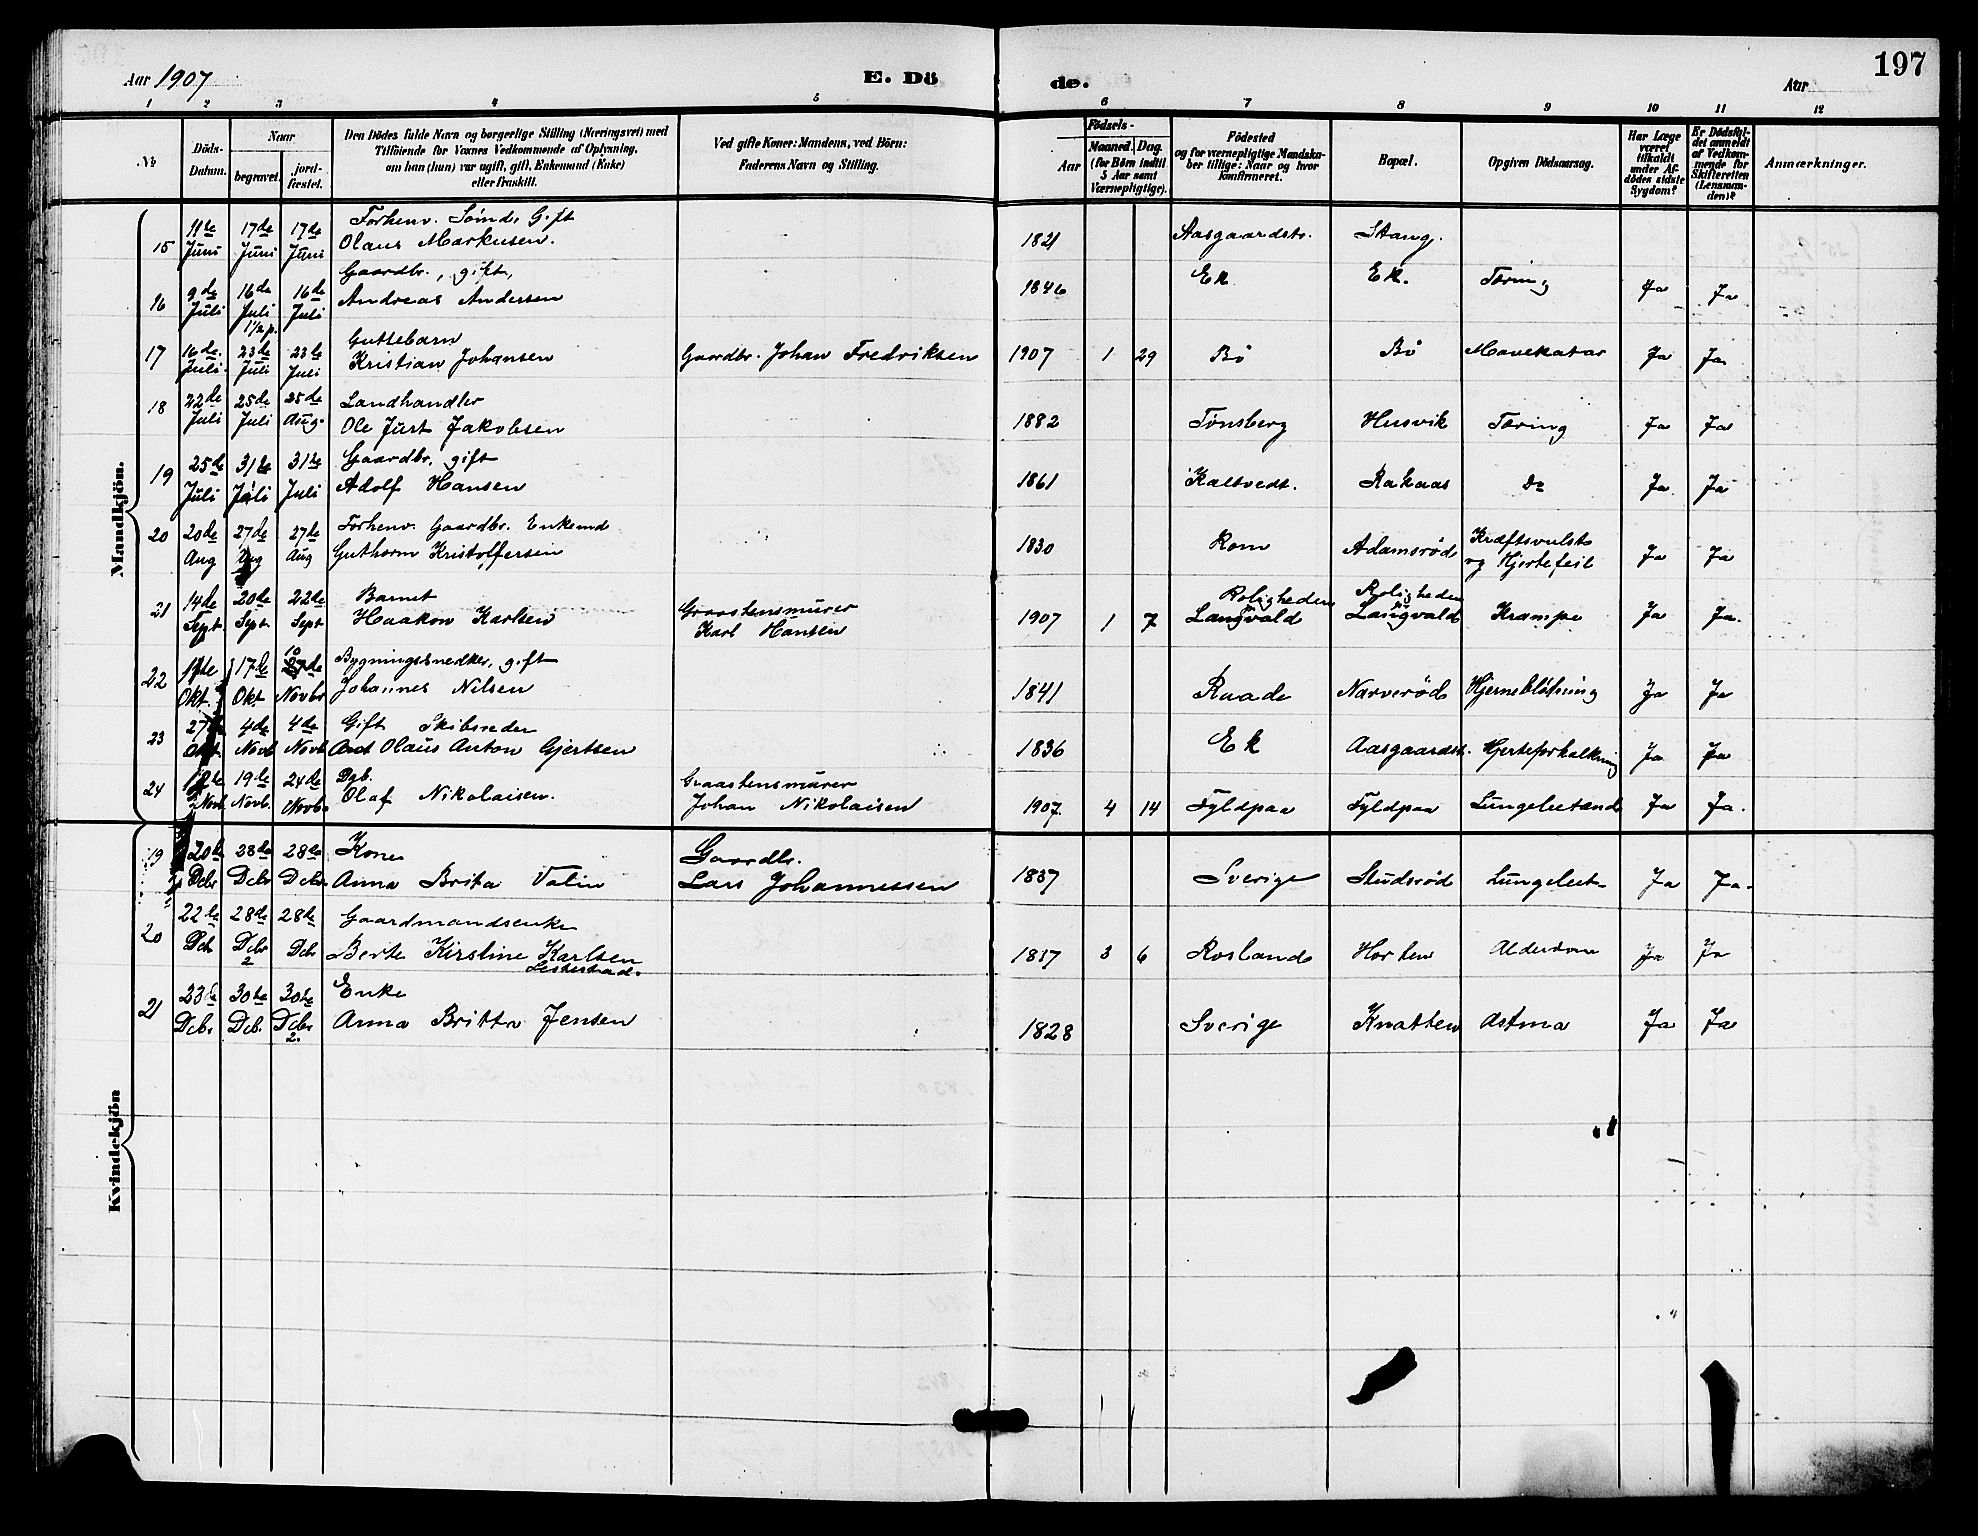 197
Aar 1907
E. Dö
de.
Aar
1 2 3 4 5 6 7 8 9 10 11 12
No
Döds-
Datum.
Naar
begravet.
jord-
fæstet.
Den Dödes fulde Navn og borgerlige Stilling (Næringsvei) med
Tilföiende for Voxnes Vedkommende af Oplysning,
om han (hun) var ugift, gift, Enkemand (Enke)
eller fraskilt.
Ved gifte Koner: Mandens, ved Börn:
Faderens Navn og Stilling.
Födsels-
Aar
Maaned. Dag.
(for Börn indtil
5 Aar samt
Værnepligtige).
Födested
og for værnepligtige Mandska-
ber tillige: Naar og hvor
konfirmeret.
Bopæl.
Opgiven Dödsaarsag.
Har Læge
været
tilkaldt
under Af-
dödes sidste
Sygdom?
Er Dödsfal-
det anmeldt
af Vedkom-
mende for
Skifteretten
(Lensman-
den)?
Anmærkninger.
Mandkjön.
15 11te Juni 17de Juni 17de Juni Forhenv. Sømd. Gift
Olaus Markusen. 1821 Aasgaardstr. Stang.
16 9de Juli 16de Juli 16de Juli Gaardbr., gift,
Andreas Andersen 1846 Ek Ek. Tæring Ja Ja
17 16de Juli 23de Juli 23de Juli Guttebarn
Kristian Johansen Gaardbr. Johan Fredriksen 1907 1 29 Bö Bö Mavekatar Ja Ja
18 22de Juli 25de Juli 25de Aug. Landhandler
Ole Just Jakobsen 1882 Tønsberg Husvik Tæring Ja Ja
19 25de Juli 31te Juli 31te Juli Gaardbr. gift
Adolf Hansen 1861 Kaltvedt. Rakaas Do Ja Ja
20 20de Aug 27de Aug 27de Aug Forhenv. Gaardbr. Enkemd
Guthorm Kristoffersen 1830 Rom Adamsrød Kræftsvulst
og Hjertefeil Ja Ja
21 14de Sept 20de Sept 22de Sept Barnet
Haakon Karlsen Graastensmurer
Karl Hansen 1907 1 7 Roligheden
Langvald Roligheden
Langvald Krampe Ja Ja.
22 Okt. 17de Okt Novbr Bygningssnedker, gift
Johannes Nilsen 1841 Raade Narverød Hjerneblødning Ja Ja
23 4de Novb 4de Novb Gift Skibsreder
Olaus Anton Gjertsen 1836 Ek Aasgaardst. Hjerteforkalkning Ja Ja
24 Novb. 19de Novb. 24de Novb. Dgb.
Olaf Nikolaisen. Graastensmurer
Johan Nikolaisen 1907. 4 14 Fyldpaa Fyldpaa Lungebetænd Ja Ja.
Kvindekjön
19 20de Dcbr 28de Dcbr 28de Dcbr. Kone
Anna Brita Valin Gaardbr.
Lars Johannessen 1837 Sverige Studsrød Lungebet- Ja Ja.
20 22de Dcbr 28de Dcbr 28de Dcbr Gaardmandsenke
Berte Kirstine Karlsen 1837 3 6 Rosland Horten Alderdom Ja Ja
21 23de Dcbr 30te Dcbr. 30te Dcbr Enke
Anna Britta Jensen 1828 Sverige Knatten Astma Ja Ja